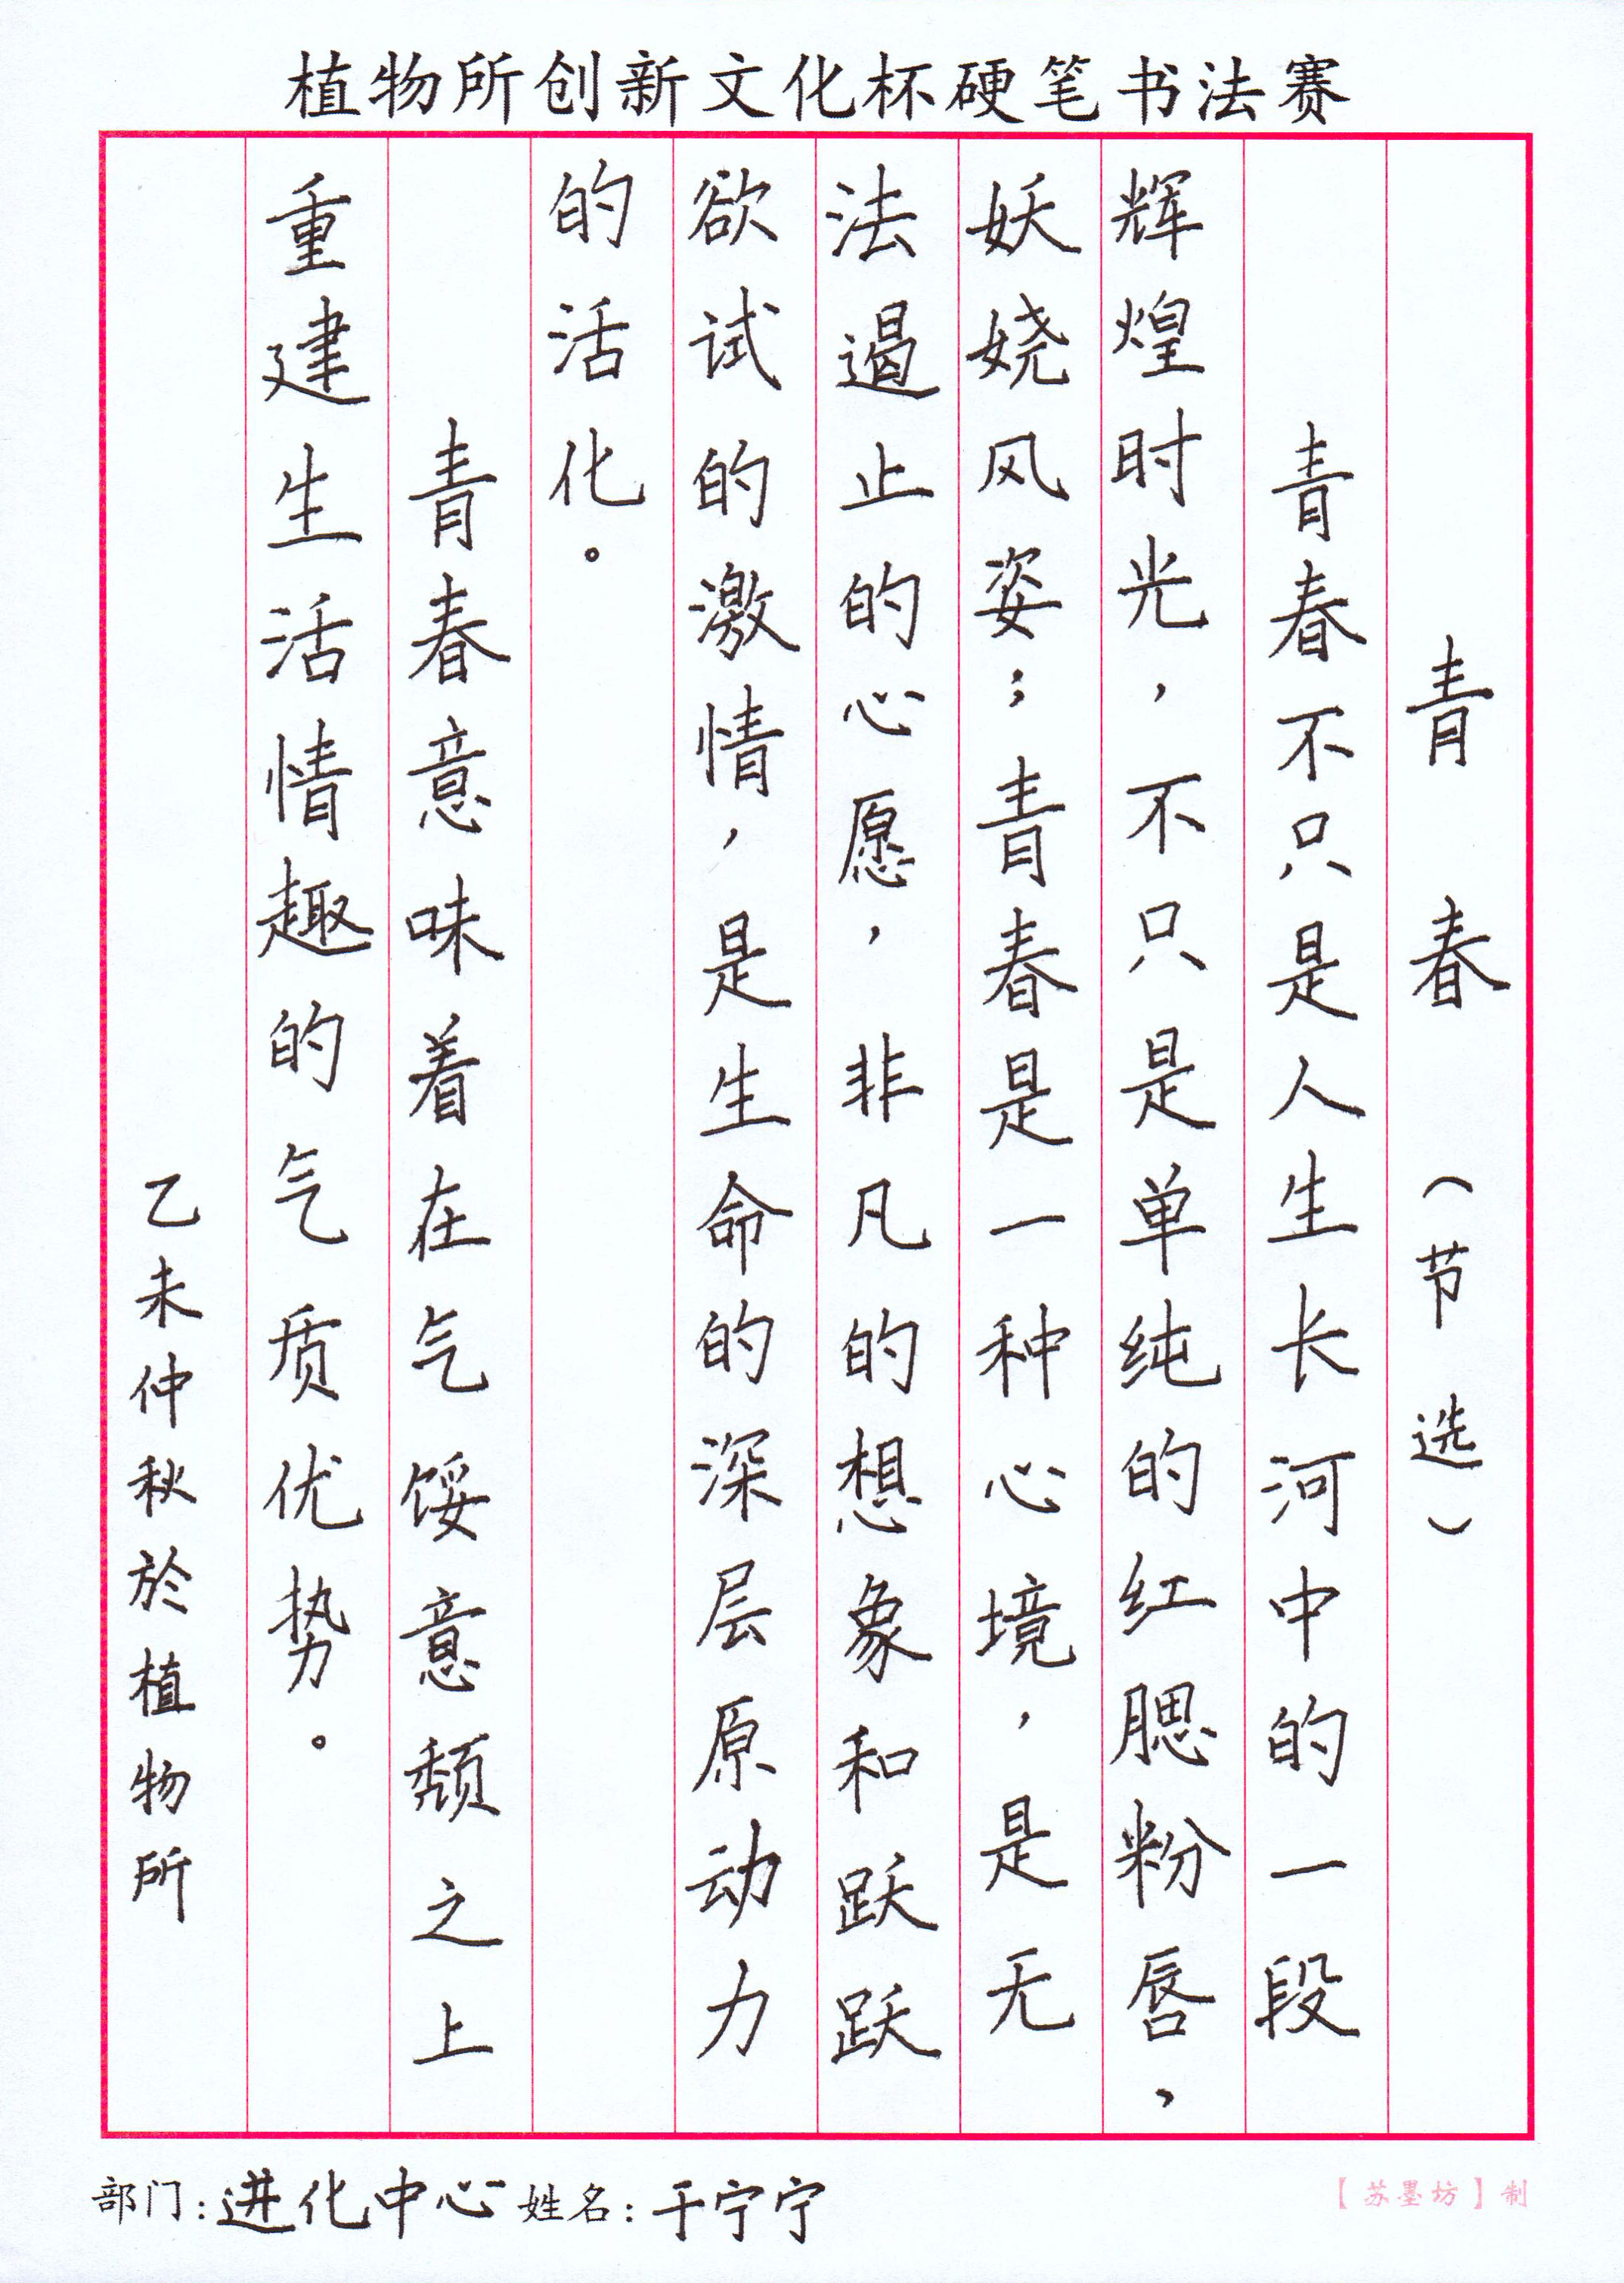 植物所创新文化杯硬笔书法赛
青春（节选）
青春不只是人生长河中的一段
辉煌时光，不只是单纯的红腮粉唇，
妖娆风姿；青春是一种心境，是无
法遏止的心愿，非凡的想象和跃跃
欲试的激情，是生命的深层原动力
的活化。
青春意味着在气馁意颓之上
重建生活情趣的气质优势。
乙未仲秋於植物所
部门：进化中心 姓名：于宁宁
【苏墨坊】制